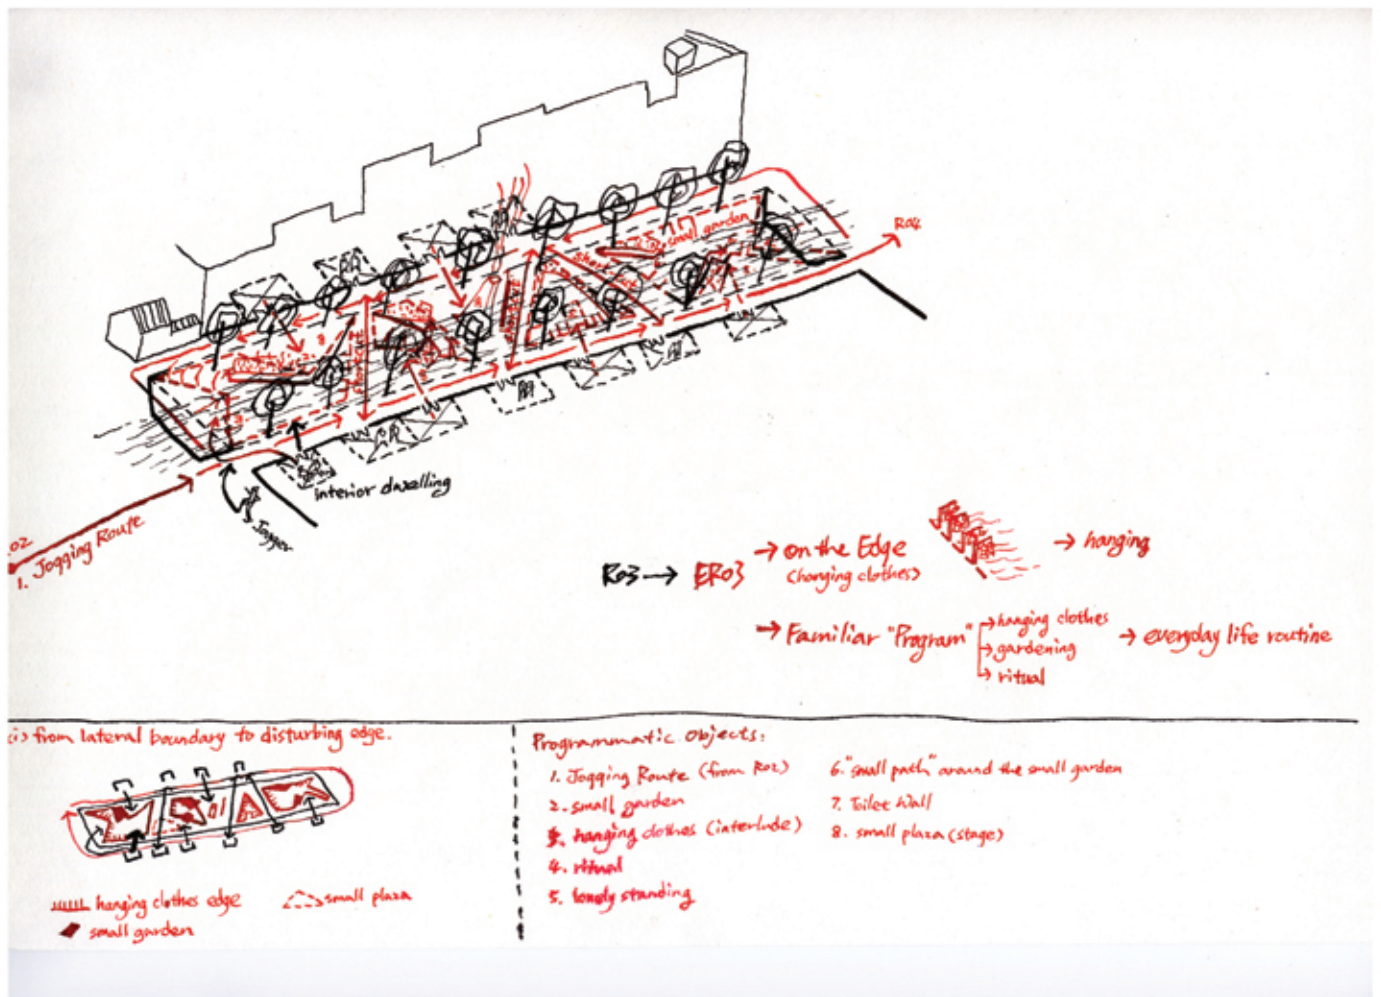 R04
small garden
short cut
shortcut
shortcut
interior dwelling
Jogger
R02
1. Jogging Route
R03 → ER03
→ on the Edge
(hanging clothes)
→ hanging
→ Familiar "Program"
→ hanging clothes
→ gardening
→ ritual
→ everyday life routine
(i) from lateral boundary to disturbing edge.
hanging clothes edge
small plaza
small garden
Programmatic Objects:
1. Jogging Route (from R02)
2. small garden
3. hanging clothes (interlude)
4. ritual
5. lonely standing
6. "small path" around the small garden
7. Toilet Wall
8. small plaza (stage)